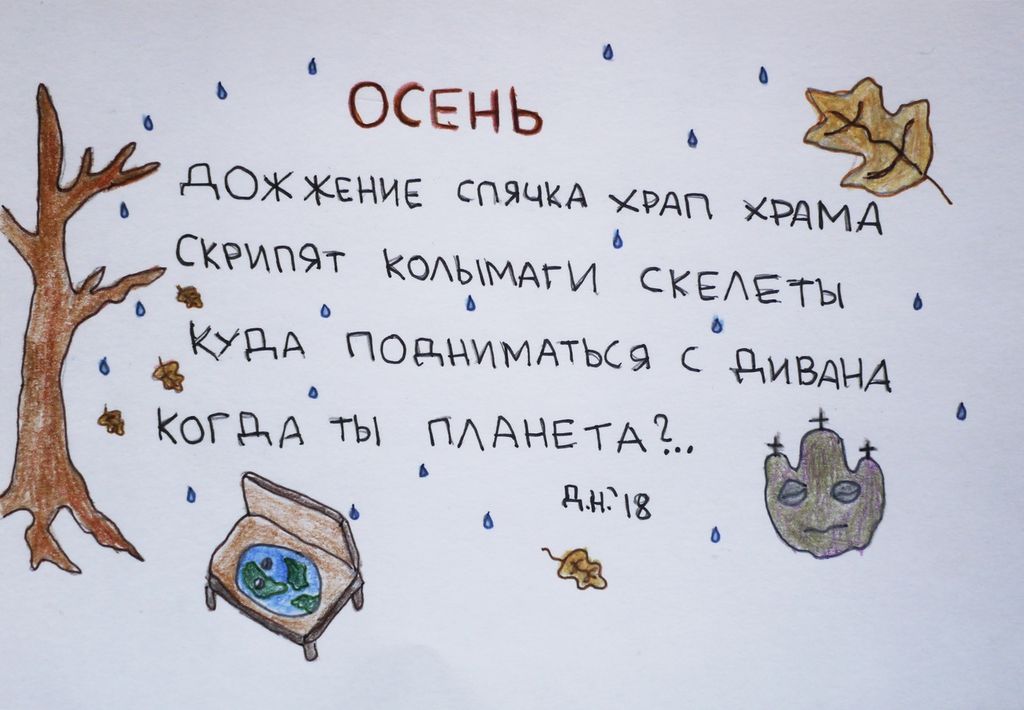 ОСЕНЬ
ДОЖЖЕНИЕ СПЯЧКА ХРАП ХРАМА
СКРИПЯТ КОЛЫМАГИ СКЕЛЕТЫ
КУДА ПОДНИМАТЬСЯ С ДИВАНА
КОГДА ТЫ ПЛАНЕТА?..
Д.Н.'18